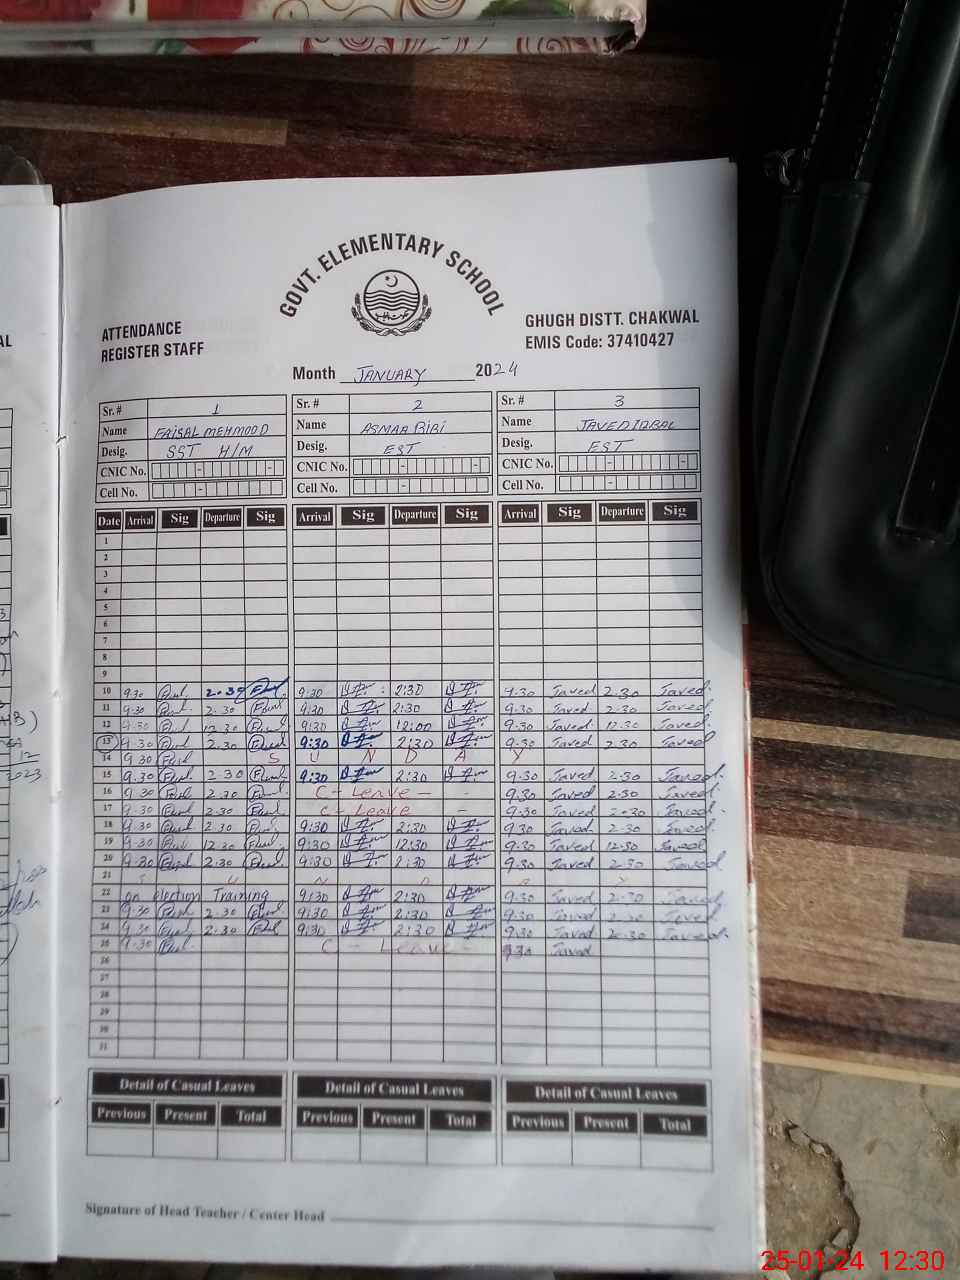 GOVT. ELEMENTARY SCHOOL
ATTENDANCE
REGISTER STAFF
GHUGH DISTT. CHAKWAL
EMIS Code: 37410427
Month JANUARY 2024
Sr. # 1 Sr. # 2 Sr. # 3
Name FAISAL MEHMOOD Name ASMAA BIBI Name JAVED IQBAL
Desig. SST H/M Desig. EST Desig. EST
CNIC No. CNIC No. CNIC No.
Cell No. Cell No. Cell No.
Date Arrival Sig Departure Sig Arrival Sig Departure Sig Arrival Sig Departure Sig
1
2
3
4
5
6
7
8
9
10 9.30 2.30 9:30 2:30 9.30 Javed 2.30 Javed
11 9.30 2.30 9:30 2:30 9.30 Javed 2.30 Javed
12 9.30 12.30 9:30 12:00 9.30 Javed 12.30 Javed
13 9.30 2.30 9:30 2:30 9.30 Javed 2.30 Javed
14 9.30 S U N D A Y
15 9.30 2.30 9:30 2:30 9.30 Javed 2.30 Javed
16 9.30 2.30 C - Leave - - 9.30 Javed 2.30 Javed
17 9.30 2.30 C - Leave - 9.30 Javed 2.30 Javed
18 9.30 2.30 9:30 2:30 9.30 Javed 2.30 Javed
19 9.30 12.30 9:30 12:30 9.30 Javed 12.30 Javed
20 9.30 2.30 9:30 2:30 9.30 Javed 2.30 Javed
21 S U N D A Y
22 on election Training 9:30 2:30 9.30 Javed 2.30 Javed
23 9.30 2.30 9:30 2:30 9.30 Javed 2.30 Javed
24 9.30 2.30 9:30 2:30 9.30 Javed 2.30 Javed
25 9.30 C - Leave - 9.30 Javed
26
27
28
29
30
31
Detail of Casual Leaves Detail of Casual Leaves Detail of Casual Leaves
Previous Present Total Previous Present Total Previous Present Total
Signature of Head Teacher / Center Head
25-01-24 12:30